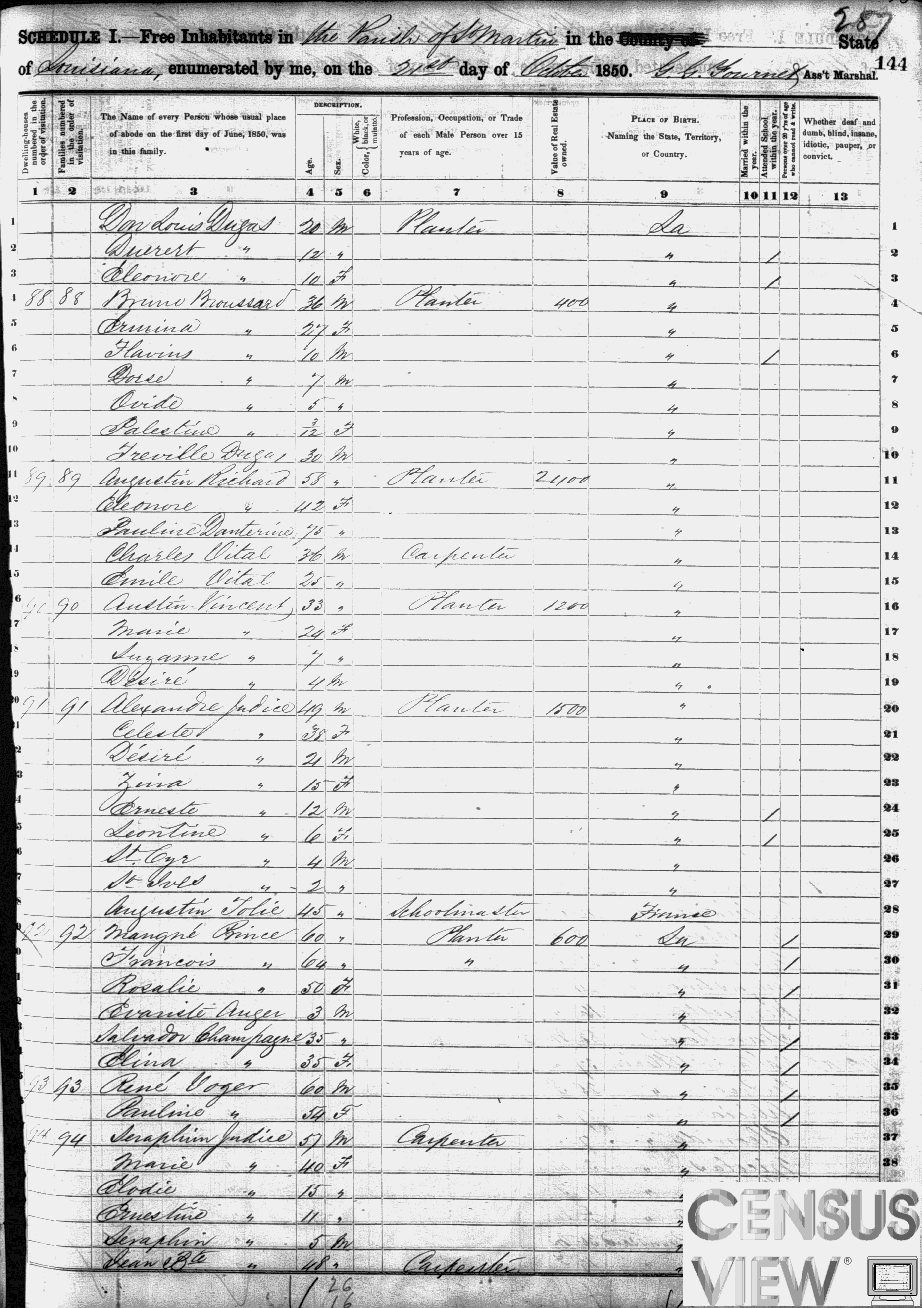 287
SCHEDULE I.—Free Inhabitants in the Parish of St Martin in the County of State
of Louisiana, enumerated by me, on the 21st day of October 1850. Ass't Marshal. 144
Dwelling-houses numbered in the order of visitation.
Families numbered in the order of visitation.
The Name of every Person whose usual place of abode on the first day of June, 1850, was in this family.
DESCRIPTION.
Age.
Sex.
Color, White, black, or mulatto.
Profession, Occupation, or Trade of each Male Person over 15 years of age.
Value of Real Estate owned.
PLACE OF BIRTH. Naming the State, Territory, or Country.
Married within the year.
Attended School within the year.
Persons over 20 y'rs of age who cannot read & write.
Whether deaf and dumb, blind, insane, idiotic, pauper, or convict.
1 2 3 4 5 6 7 8 9 10 11 12 13
1 Don Louis Dugas 20 M Planter La 1
2 " 12 " " / 2
3 Eleonore " 10 F " / 3
88 88 Bruno Broussard 36 M Planter 400 " 4
5 Ermina " 27 F " 5
6 Flavius " 10 M " / 6
7 Dorse " 7 M " 7
8 Ovide " 5 " " 8
9 Palestine " 3/12 F " 9
10 Treville Dugas 30 M " 10
89 89 Augustin Richard 58 " Planter 2400 " 11
12 Eleonore " 42 F " 12
13 Pauline Danterive 75 " " 13
14 Charles Vital 36 M Carpenter 14
15 Emile Vital 25 " " 15
90 90 Austin Vincent 33 " Planter 1200 " 16
17 Marie " 24 F " 17
18 Suzanne " 7 " " 18
19 Désiré " 4 M " 19
91 91 Alexandre Judice 49 M Planter 1500 " 20
21 Celeste " 38 F " 21
Désiré " 21 M " 22
Zina " 15 F " 23
Erneste " 12 M " / 24
Léontine " 6 F " / 25
St. Cyr " 4 M " 26
St Ives " 2 " " 27
Augustin Tolie 45 " Schoolmaster France 28
92 92 Mangné Prince 60 " Planter 600 La / 29
Francois " 64 " " " / 30
Rosalie " 50 F " / 31
Evariste Anger 3 M " 32
Salvador Champagne 35 " " / 33
Elina " 35 F " / 34
93 93 René Voger 60 M " / 35
Pauline " 54 F " / 36
94 94 Seraphin Judice 51 M Carpenter " 37
Marie " 40 F " 38
Elodie " 15 " "
Ernestine " 11 " "
Seraphin " 5 M "
Jean Bte " 48 " Carpenter "
26
16
CENSUS
VIEW®